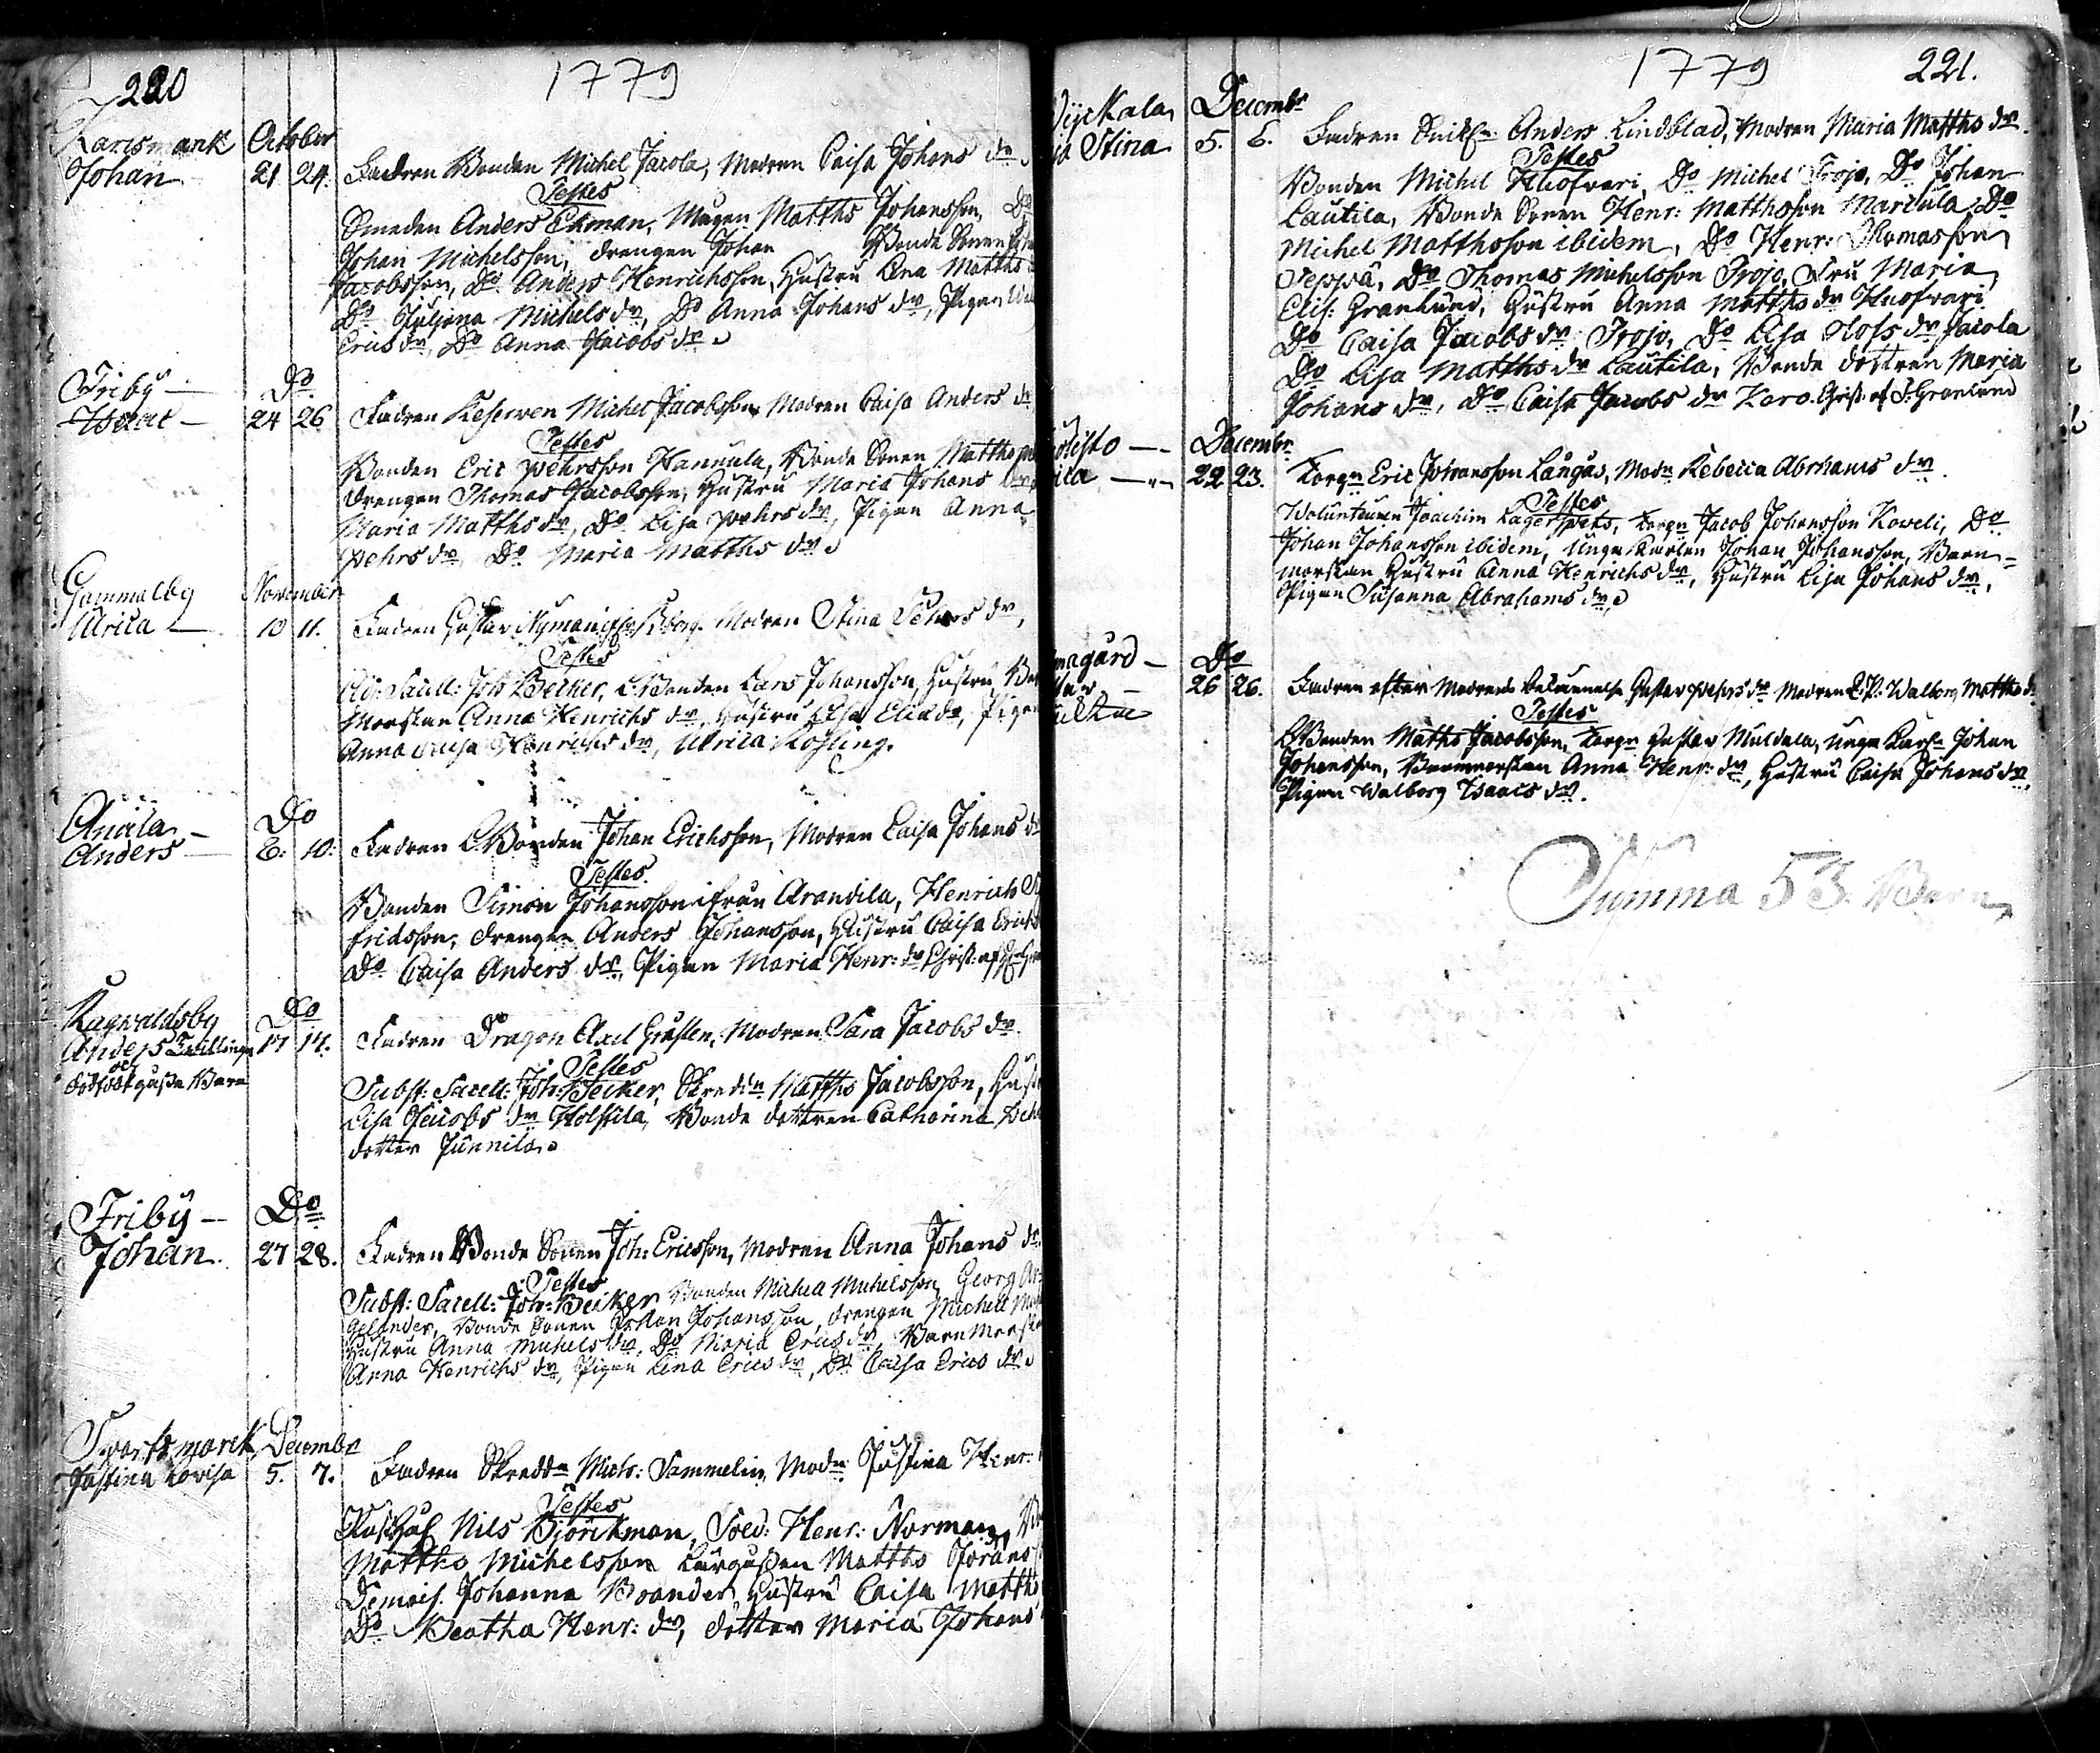 220
1779
Karismank October
Johan 21 24. Fadren Bonden Michel Jacola, Modren Caisa Johans dr
Testes
Smeden Anders Ekman, Mågen Matths Johansson, Do
Johan Michelsson, drengen Johan Bonde Sonen
Jacobsson, Do Anders Henrichsson, Hustru Lena Matths
Do Juliana Michels dr, Do Anna Johans dr, Pigan
Erics dr, Do Anna Jacobs dr
Friby Do
Isaac 24 26 Fadren Reserven Michel Jacobsson, Modren Caisa Anders dr
Testes
Bonden Eric Pehrsson Hannula, Bonde Sonen Matths
drengen Thomas Jacobsson, Hustru Maria Johans dr
Maria Matths dr, Do Lisa Pehrs dr, Pigan Anna
Pehrs dr, Do Maria Matths dr
Gammalby November
Ulrica 10 11. Fadren Gustav Nyman Modren Stina Pehrs dr,
Testes
Sacell: Joh: Becker, Bonden Lars Johansson, Hustru
Morskan Anna Henrichs dr, Hustru Lisa Elia dr, Pigan
Anna Caisa Henrichs dr, Ulrica Kosling.
Anoila Do
Anders 8. 10. Fadren Bonden Johan Erichsson, Modren Caisa Johans dr
Testes
Bonden Simon Johansson ifrån Arandila, Henrich
fridsson, drengen Anders Johansson, Hustru Caisa Erichs
Do Caisa Anders dr, Pigan Maria Henr: dr Christ: af
Ragwaldsby Do
Anders Tvillingar 17 17. Fadren Dragon Axel Gusten, Modren Sara Jacobs dr
och
dödfödt gosse Barn
Testes
Subst: Sacell: Joh: Becker, Skreddn Matths Jacobsson,
Lisa Jacobs dr Holstila, Bonde dottren Catharina
dotter Junnila
Friby Do
Johan 27 28. Fadren Bonde Sonen Joh: Ericsson, Modren Anna Johans dr
Testes
Subst: Sacell: Joh: Becker Bonden Michel Michelsson, Georg
Bonde Sonen Johansson, drengen Michell
Hustru Anna Michels dr, Do Maria Erics dr, Barn Morskan
Anna Henrichs dr, Pigan Lena Erics dr, Do Caisa Erics dr
Svartsmarck Decembr
Justina Lovisa 5. 7. Fadren Skreddn Mich: Sammelin, Modn Justina Henr:
Testes
Nils Björckman, Sold: Henr: Norman,
Matths Michelsson Lärgossen Matths Jörans
Demois. Johanna Boander, Hustru Caisa Matths
Do Beatha Henr: dr, dotter Maria Johans
1779
221.
Decembr
Stina 5. 6. Fadren Snick. Anders Lindblad, Modren Maria Matths dr
Testes
Bonden Michel Huofvari, Do Michel Trojo, Do Johan
Lautila, Bonde Sonen Henr: Matthsson Marcula, Do
Michel Matthsson ibidem, Do Henr: Thomasson
Seppä, Do Thomas Michelsson Trojo, Fru Maria
Elis: Granlund, Hustru Anna Matths dr Huofvari
Do Caisa Jacobs dr Trojo, Do Lisa Olofs dr Jacola
Do Lisa Matths dr Lautila, Bonde dottren Maria
Johans dr, Do Caisa Jacobs dr Karo. Christ: af J: Granlund
Decembr
22 23. Torpn Eric Johansson Långås, Modn Rebecca Abrahams dr
Testes
Volunteuren Joachim Lagerspets, Torpn Jacob Johansson Koveli, Do
Johan Johansson ibidem, Unga Karlen Johan Johansson, Barn=
morskan Hustru Anna Henrichs dr, Hustru Lisa Johans dr,
Pigan Susanna Abrahams dr
Do
26 26. Fadren efter Modrens bekännelse Gustav Modren Q.P. Walborg Matths dr
Testes
Bonden Matths Jacobsson, Torpn Gustav Muldala, Unga Karln Johan
Johansson, Barnmorskan Anna Henr: dr, Hustru Caisa Johans dr,
Pigan Walborg Isaacs dr.
Summa 53. Barn